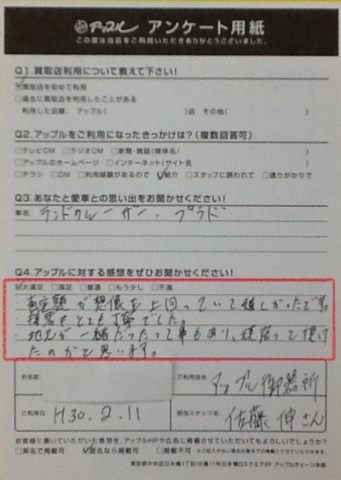 アップル アンケート用紙
この度は当店をご利用いただきありがとうございました。
Q1.買取店利用について教えて下さい!
☑買取店を初めて利用
□過去に買取店を利用したことがある
利用した店舗: アップル( )店 その他( )
Q2.アップルをご利用になったきっかけは?(複数回答可)
□テレビCM □ラジオCM □新聞・雑誌(媒体名/ )
□アップルのホームページ □インターネット(サイト名 )
□チラシ □DM □利用経験があるので ☑紹介 □スタッフに誘われて □通りがかりで
Q3.あなたと愛車との思い出をお聞かせください!
車名 ランドクルーザー・プラド
Q4.アップルに対する感想をぜひお聞かせください!
☑大満足 □満足 □普通 □もう少し □不満
査定額が想像を上回っていて嬉しかったです。
接客もとても丁寧でした。
地元が一緒だったって事もあり、頑張って頂け
たのかと思います。
お名前
ご利用店名 アップル御器所
ご利用日 H30.2.11
担当スタッフ名 佐藤伸さん
お客様に書いていただいた感想を、アップルHPや広告に掲載させていただいてもよろしいでしょうか?
□実名で掲載可 ☑匿名なら掲載可 □掲載不可
東京都中央区日本橋1丁目16番11号日本橋Dスクエア8F アップルチェーン本部